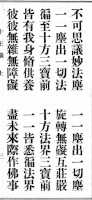 不可思議妙法塵　一一塵出一切塵
一一塵出一切法　旋轉無礙互莊嚴
徧至十方三寶前　十方法界三寶前
皆有我身脩供養　一一皆悉徧法界
彼彼無雜無障礙　盡未來際作佛事